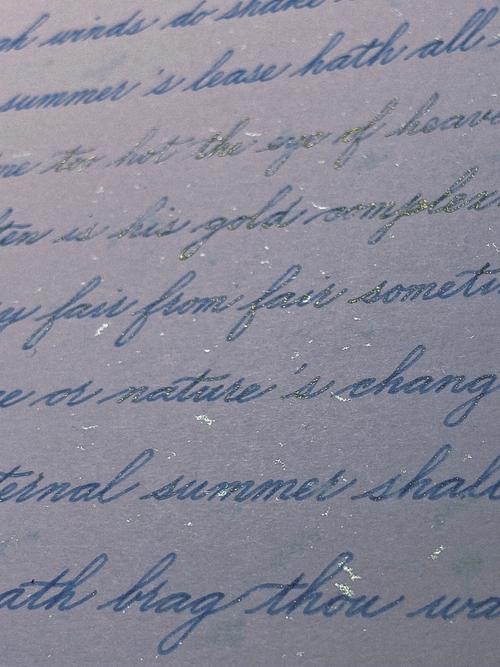 gh winds do shake
summer's lease hath all
me too hot the eye of heave
ten is his gold complex
y fair from fair someti
e or nature's chang
ternal summer shall
ath brag thou wa